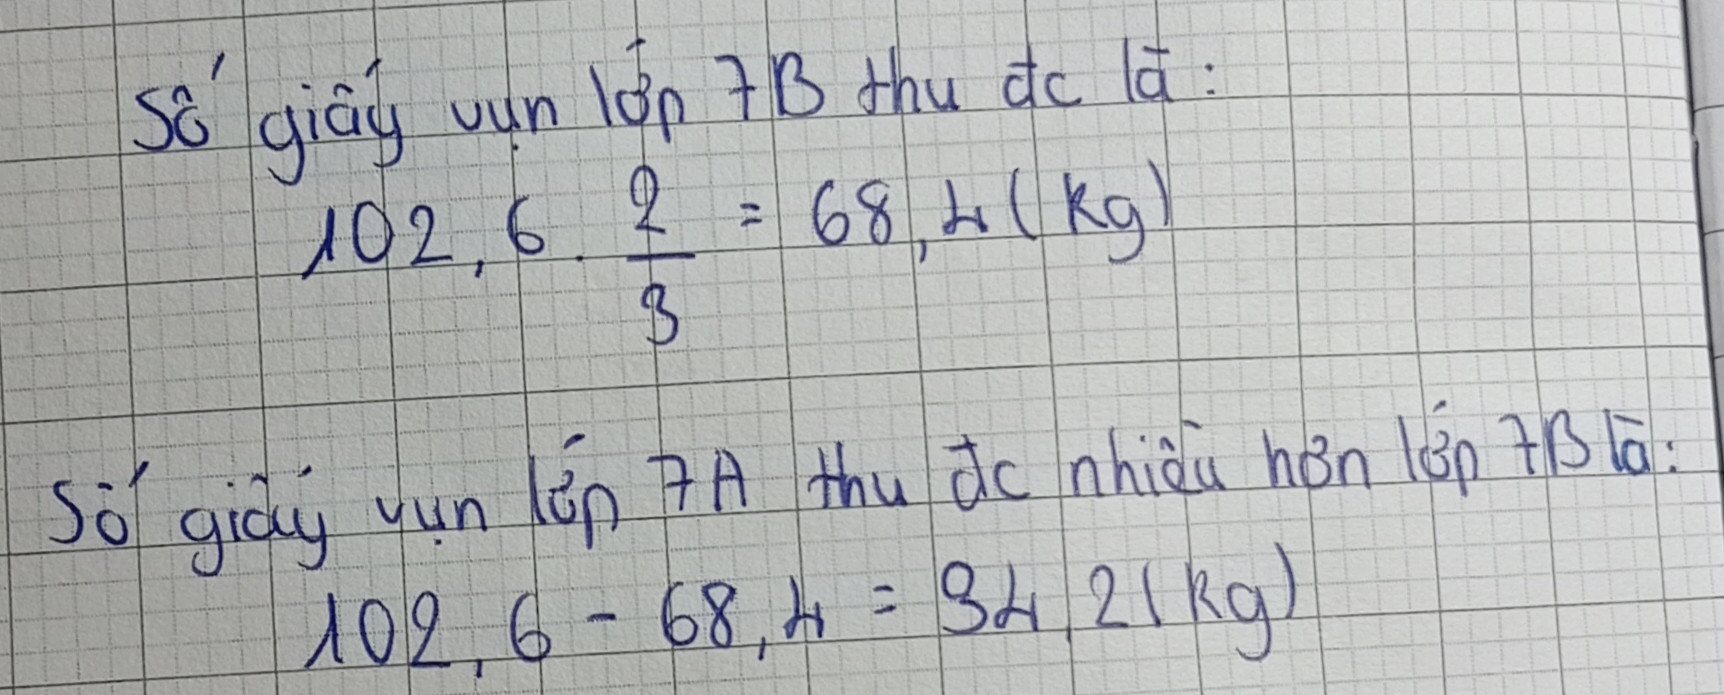 Số giấy vụn lớp 7B thu đc là:
102,6 . 2/3 = 68,4 (kg)
Số giấy vụn lớp 7A thu đc nhiều hơn lớp 7B là:
102,6 - 68,4 = 34,2 (kg)